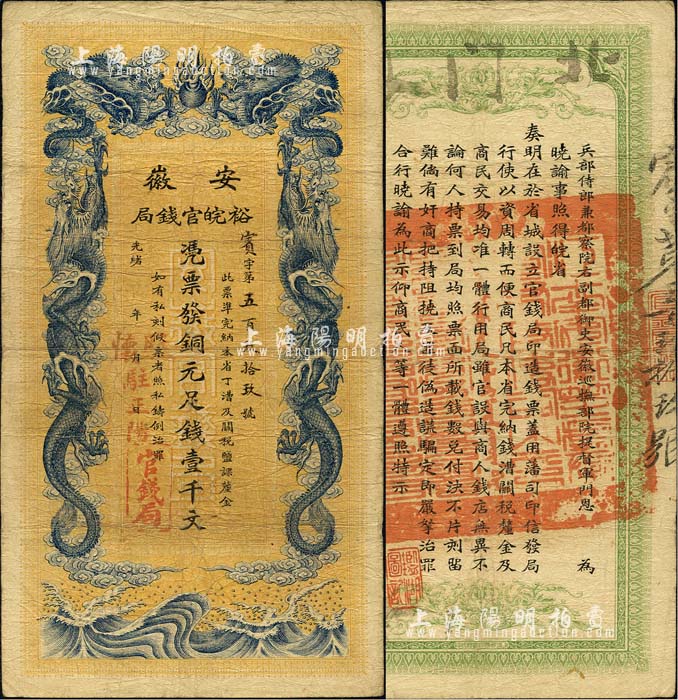 上海陽明拍賣
www.yangmingauction.com
安徽
裕皖官錢局
寅字第五百拾玖號
此票準完納本省丁漕及關稅鹽課釐金
憑票發銅元足錢壹千文
如有私刻假票者照私鑄例治罪
光緒 年 月 日
駐正陽官錢局
上海陽明拍賣
www.yangmingauction.com
上海陽明拍賣
www.yangmingauction.com
北門
兵部侍郎兼都察院右副都御史安徽巡撫部院提督軍門恩 為
曉諭事照得皖省
奏明在於省城設立官錢局印造錢票蓋用藩司印信發局
行使以資周轉而便商民凡本省完納錢漕關稅釐金及
商民交易均准一體行用局雖官設與商人錢店無異不
論何人持票到局均照票面所載錢數兌付決不片刻留
難倘有奸商把持阻撓之徒偽造謀騙定即嚴拏治罪
合行曉諭為此示仰商民人等一體遵照特示
拾玖號
上海陽明拍賣
www.yangmingauction.com
上海陽明拍賣
www.yangmingauction.com